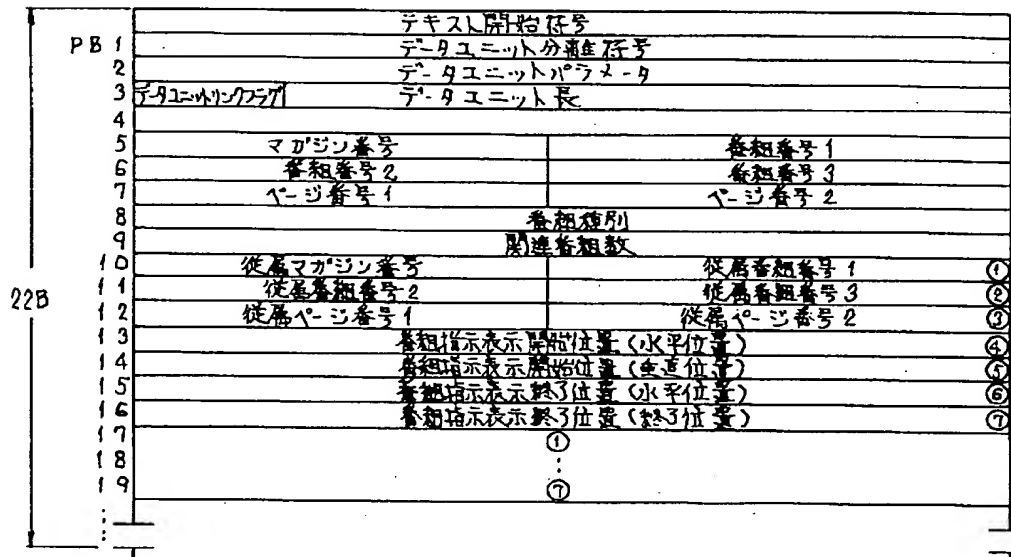 テキスト開始符号
PB 1 データユニット分離符号
2 データユニットパラメータ
3 データユニットリンクフラグ データユニット長
4
5 マガジン番号 番組番号1
6 番組番号2 番組番号3
7 ページ番号1 ページ番号2
8 番組種別
9 関連番組数
10 従属マガジン番号 従属番組番号1 ①
11 従属番組番号2 従属番組番号3 ②
12 従属ページ番号1 従属ページ番号2 ③
22B
13 番組指示表示開始位置(水平位置) ④
14 番組指示表示開始位置(垂直位置) ⑤
15 番組指示表示終了位置(水平位置) ⑥
16 番組指示表示終了位置(終了位置) ⑦
17 ①
18 :
19 ⑦